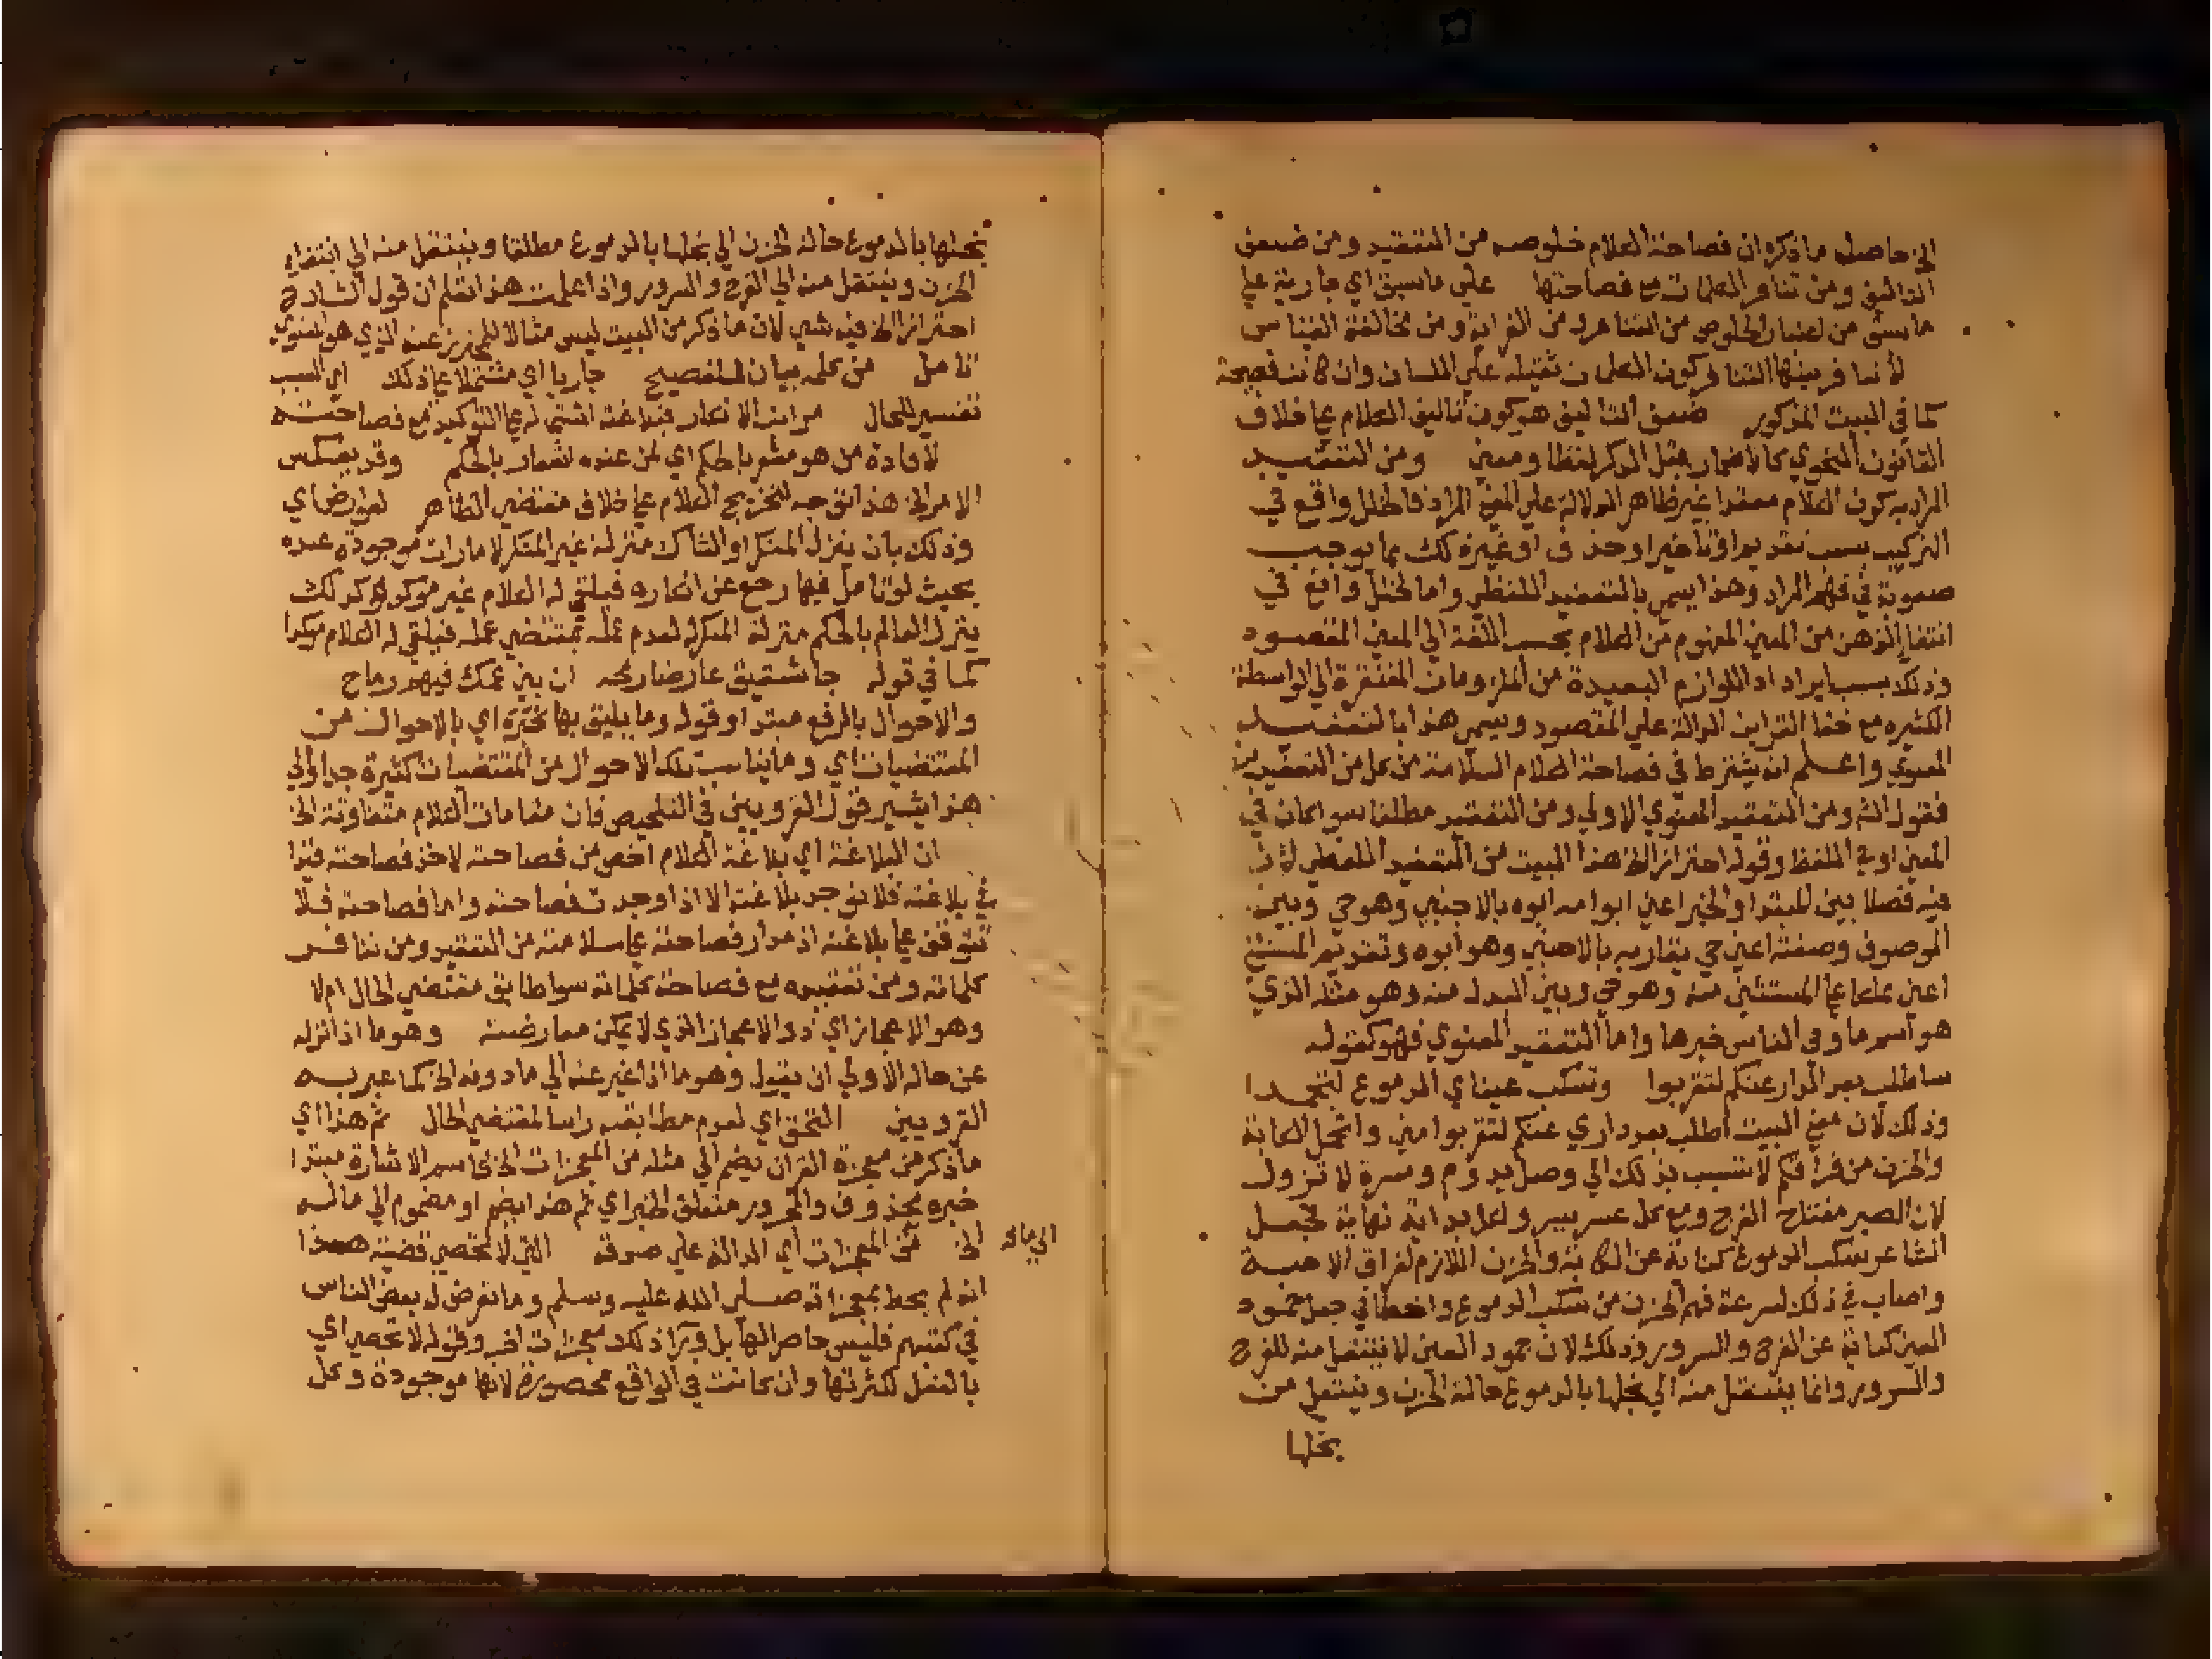 الخ حاصل ما ذكره ان فصاحة الكلام خلوصه من التعقيد ومن ضعف
التاليف ومن تنافر الكلمات مع فصاحتها علي ما سبق اي جارية علي
ما سبق من اعتبار الخلوص من التنافر ومن الغرابة ومن مخالفة القياس
لانما فر بينها التنافر كون الكلمات ثقيلة علي اللسان وان كانت فصيحة
كما في البيت المذكور ضعف التاليف هو كون تاليف الكلام علي خلاف
القانون النحوي كالاضمار قبل الذكر لفظا ومعني ومن التعقيد
المراد به كون الكلام معقدا غير ظاهر الدلالة علي المعني المراد فالخلل واقع في
التركيب بسبب تقديم او تاخير او حذف او غير ذلك بما يوجب
صعوبة في فهم المراد وهذا يسمي بالتعقيد اللفظي واما لخلل واقع في
انتقال الذهن من المعني المفهوم من الكلام بحسب اللغة الي المعني المقصود
وذلك بسبب ايراد اللوازم البعيدة من الملزومات المفتقرة الي الواسطة
الكثيره مع خفا القراين الدالة علي المقصود ويسمي هذا بالتعقيد
المعنوي واعلم انه يشترط في فصاحة الكلام السلامة من كل من التعقيدين
فقول الشم ومن التعقيد المعنوي الاولي ومن التعقيد مطلقا سوا كان في
المعني او في اللفظ وقوله احترازا الخ هذا البيت من التعقيد اللفظي لان
فيه فصلا بين المبتدا والخبر اعني ابو امه ابوه بالاجنبي وهو حي وبين
الموصوف وصفته اعني حي يقاربه بالاجنبي وهو ابوه وتقديم المستثني
اعني مملكا علي المستثني منه وهو حي وبين البدل منه وهو مثله الذي
هو اسم ما وفي الناس خبرها واما التعقيد المعنوي فهو كقوله
ساطلب بعد الدار عنكم لتقربوا وتسكب عيناي الدموع لتجمدا
وذلك لان معني البيت اطلب بعد داري عنكم لتقربوا مني واتحمل الكابة
والحزن من فراقكم لاتسبب بذلك الي وصل يدوم ومسرة لا تزول
لان الصبر مفتاح الفرج ومع كل عسر يسر ولكل بداية نهاية فجعل
الشاعر سكب الدموع كناية عن الكابة والحزن اللازم لفراق الاحبة
واصاب في ذلك لسرعة فهم الحزن من سكب الدموع واخطا في جعل جمود
العين كناية عن الفرح والسرور وذلك لان جمود العين لا ينتقل منه للفرح
والسرور وانما ينتقل منه الي بخلها بالدموع حالة الحزن وينتقل من
بخلها
بخلها بالدموع حالة الحزن الي بخلها بالدموع مطلقا وينتقل منه الي انتفاء
الحزن وينتقل منه الي الفرح والسرور واذا علمت هذا تعلم ان قول الشارح
احترازا الخ فيه شي لان ما ذكر من البيت ليس مثالا للمحترز عنه الذي هو المعنوي
تامل من كلمه بيان للفصيح جاريا اي مشتملا علي ذلك اي السبب
تفسير للحال مراتب الانكار فبلاغة اشتماله علي التوكيد مع فصاحته
لافادة من هو مشو بالحكم اي لمن عنده اشعار بالحكم وقد يعكس
الامر الخ هذا اتوجه لتخريج الكلام علي خلاف مقتضي الظاهر لغرض اي
وذلك بان ينزل المنكر او الشاك منزلة غير المنكر لامارات موجودة عنده
بحيث لو تامل فيها رجع عن انكاره فيلقي له الكلام غير موكد وكذلك
ينزل العالم بالحكم منزلة المنكر لعدم عمله بمقتضي علمه فيلقي له الكلام موكدا
كما في قوله جا شقيق عارضا رمحه ان بني عمك فيهم رماح
والاحوال بالرفع مبتدا وقوله وما يليق بها خبره اي بالاحوال من
المقتضيات اي وما يناسب تلك الاحوال من المقتضيات كثيرة جدا والي
هذا يشير قول القزويني في التلخيص فان مقامات الكلام متفاوتة الخ
ان البلاغة اي بلاغة الكلام اخص من فصاحته لاخذ فصاحته قيدا
في بلاغته فلا توجد بلاغته الا اذا وجدت فصاحته واما فصاحته فلا
تتوقف علي بلاغته اذ مدار فصاحته علي سلامته من التعقيد ومن تنافر
كلماته ومن تعقيده مع فصاحة كلماته سوا طابق مقتضي الحال ام لا
وهو الاعجاز اي ذو الاعجاز الذي لا يمكن معارضته وهو ما اذا نزله
عن حاله الاولي ان يقول وهو ما اذا غير عنه الي ما دونه الخ كما عبر به
القزويني التحق اي لعدم مطابقته راسا لمقتضي الحال ثم هذا اي
ما ذكر من معجزة القران يضم الي مثله من المعجزات الخ فاسم الاشارة مبتدا
خبره محذوف والمجرور متعلق الخبر اي ثم هذا يضم او مضموم الي ماله
الي ماله الخ من المعجزات اي الدالة علي صدقه التي لا تحصي قضيته هكذا
انه لم يحط بمعجزاته صلي الله عليه وسلم وما تعرض له بعض الناس
في كتبهم فليس حاصرا لها بل وراء ذلك معجزات اخر وقوله لا تحصي اي
بالفعل لكثرتها وان كانت في الواقع محصورة لانها موجودة وكل